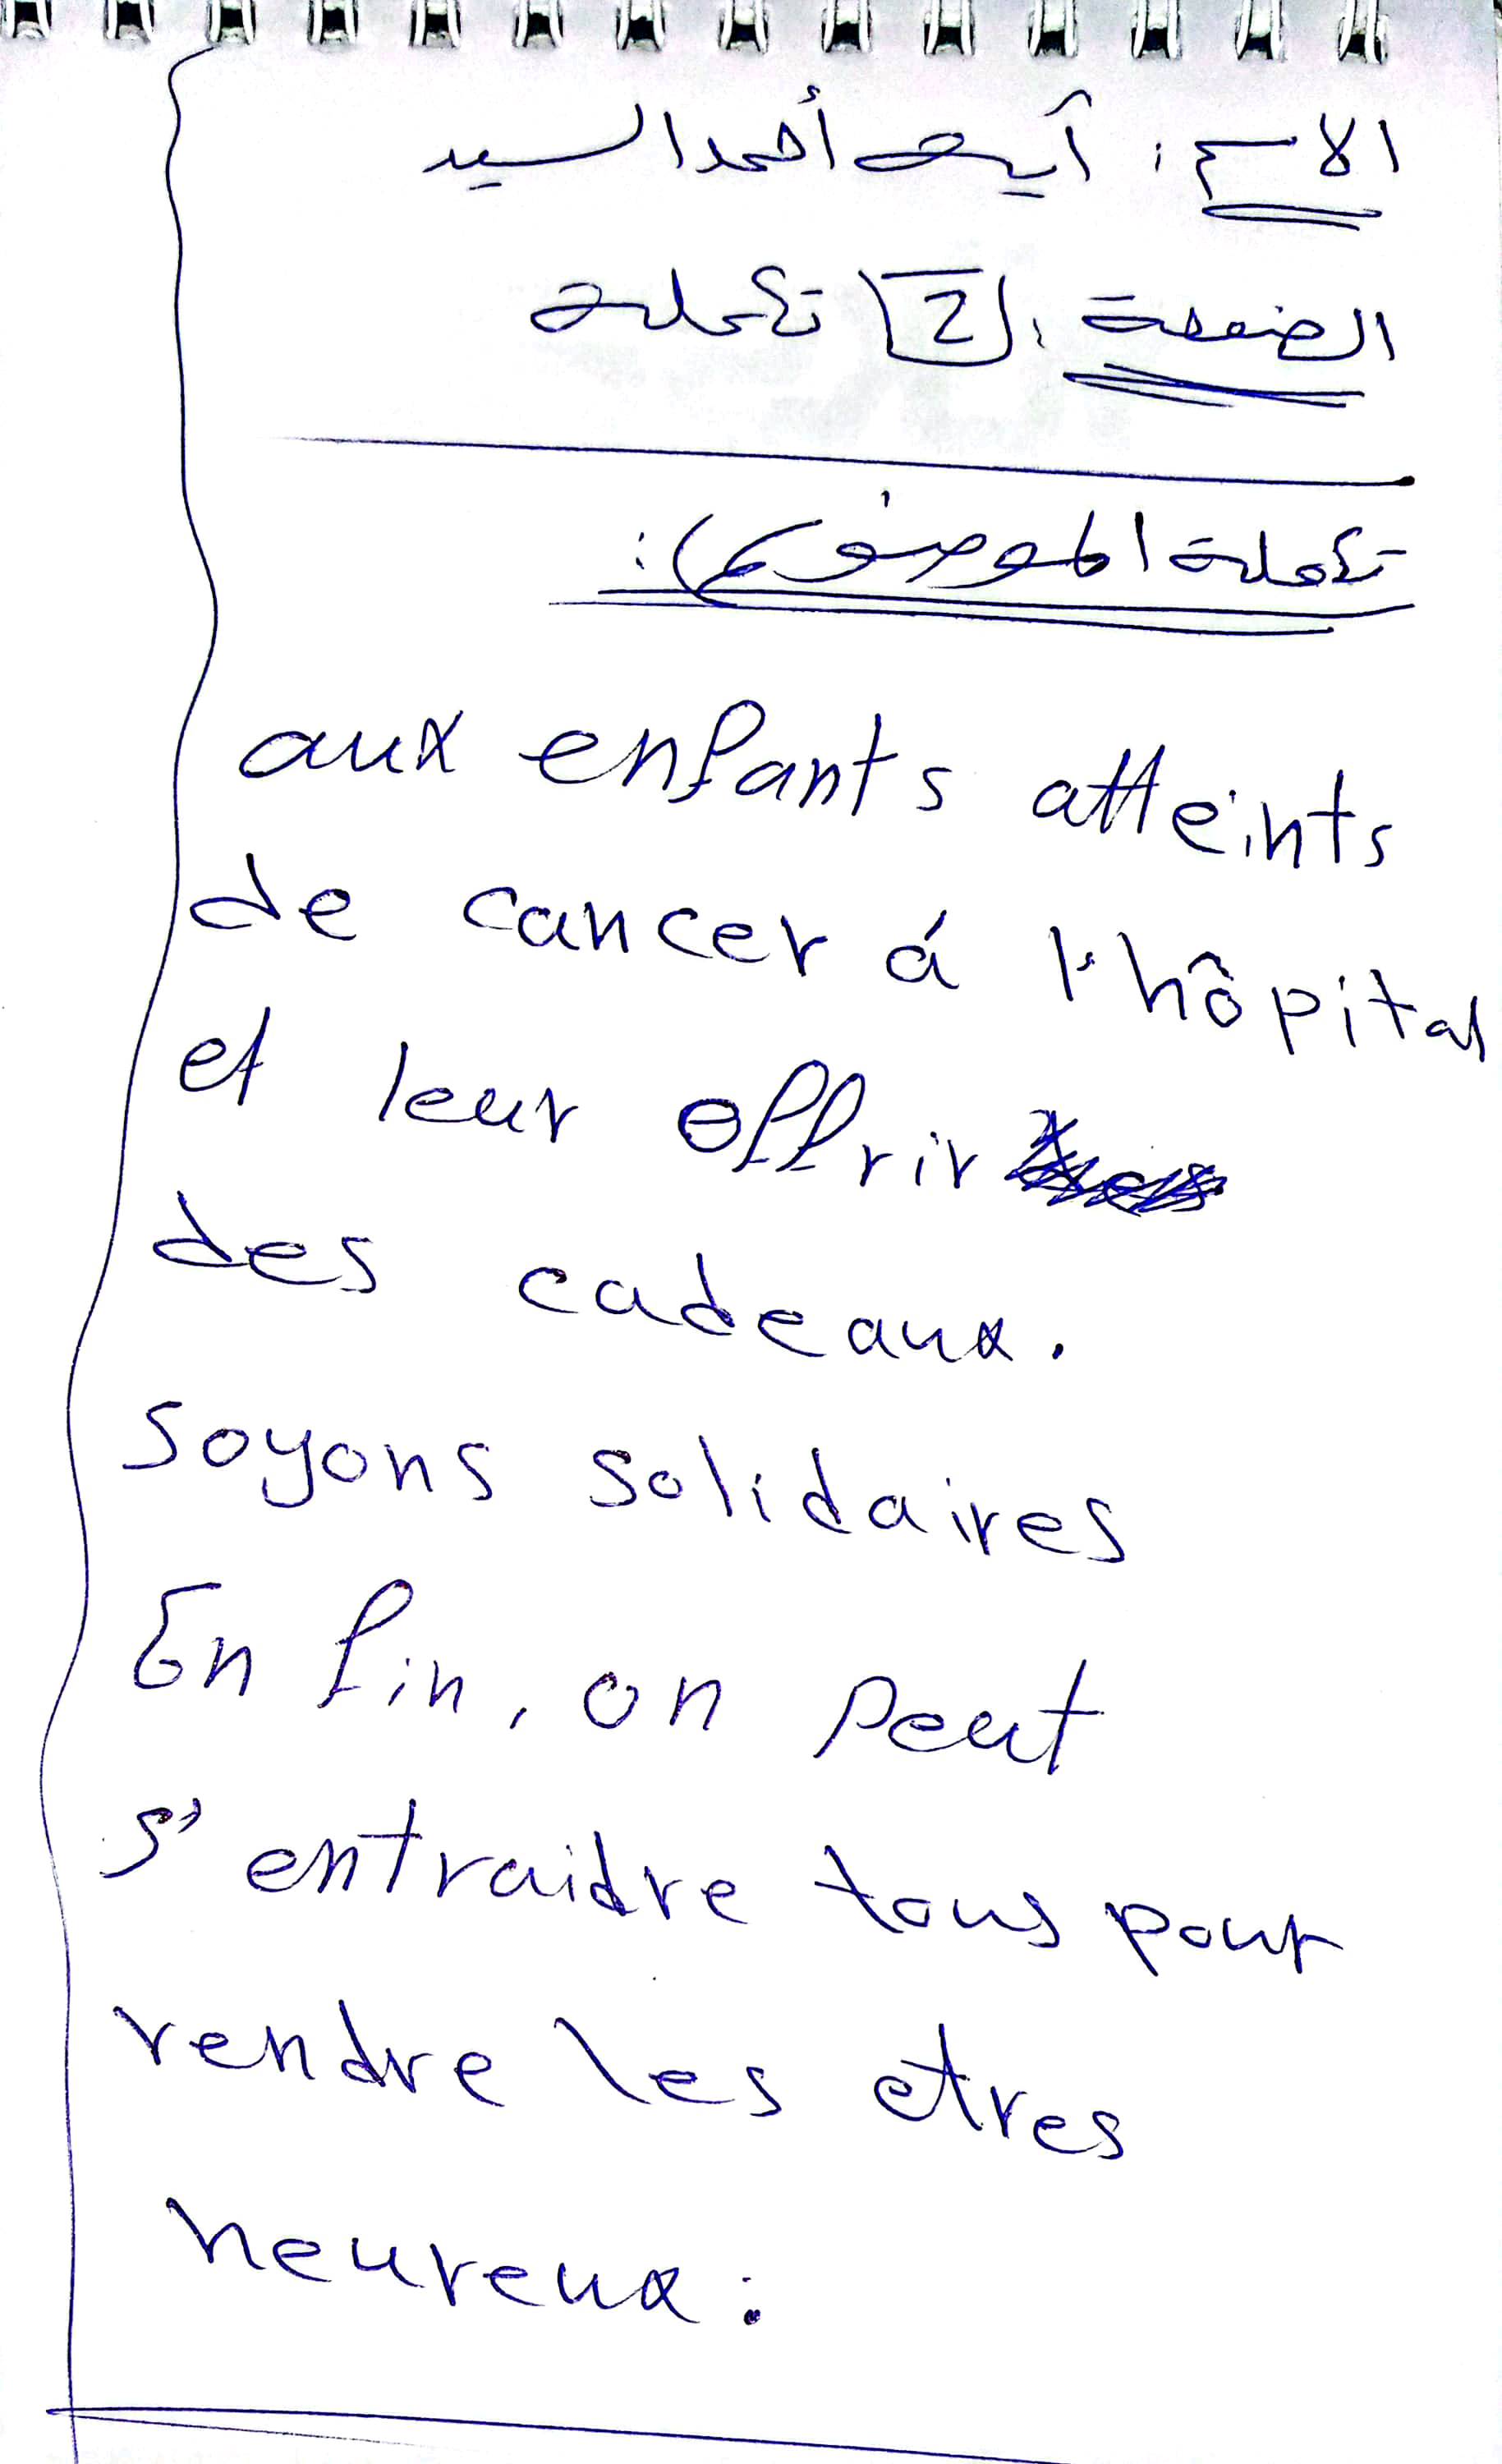 الاسم : آية أحمد السيد
الصفحة : [2] تكملة
تكملة الموضوع):
aux enfants atteints
de cancer á l'hôpital
et leur offrir
des cadeaux.
soyons solidaires
En fin, on peut
s'entraidre tous pour
rendre les etres
heureux :